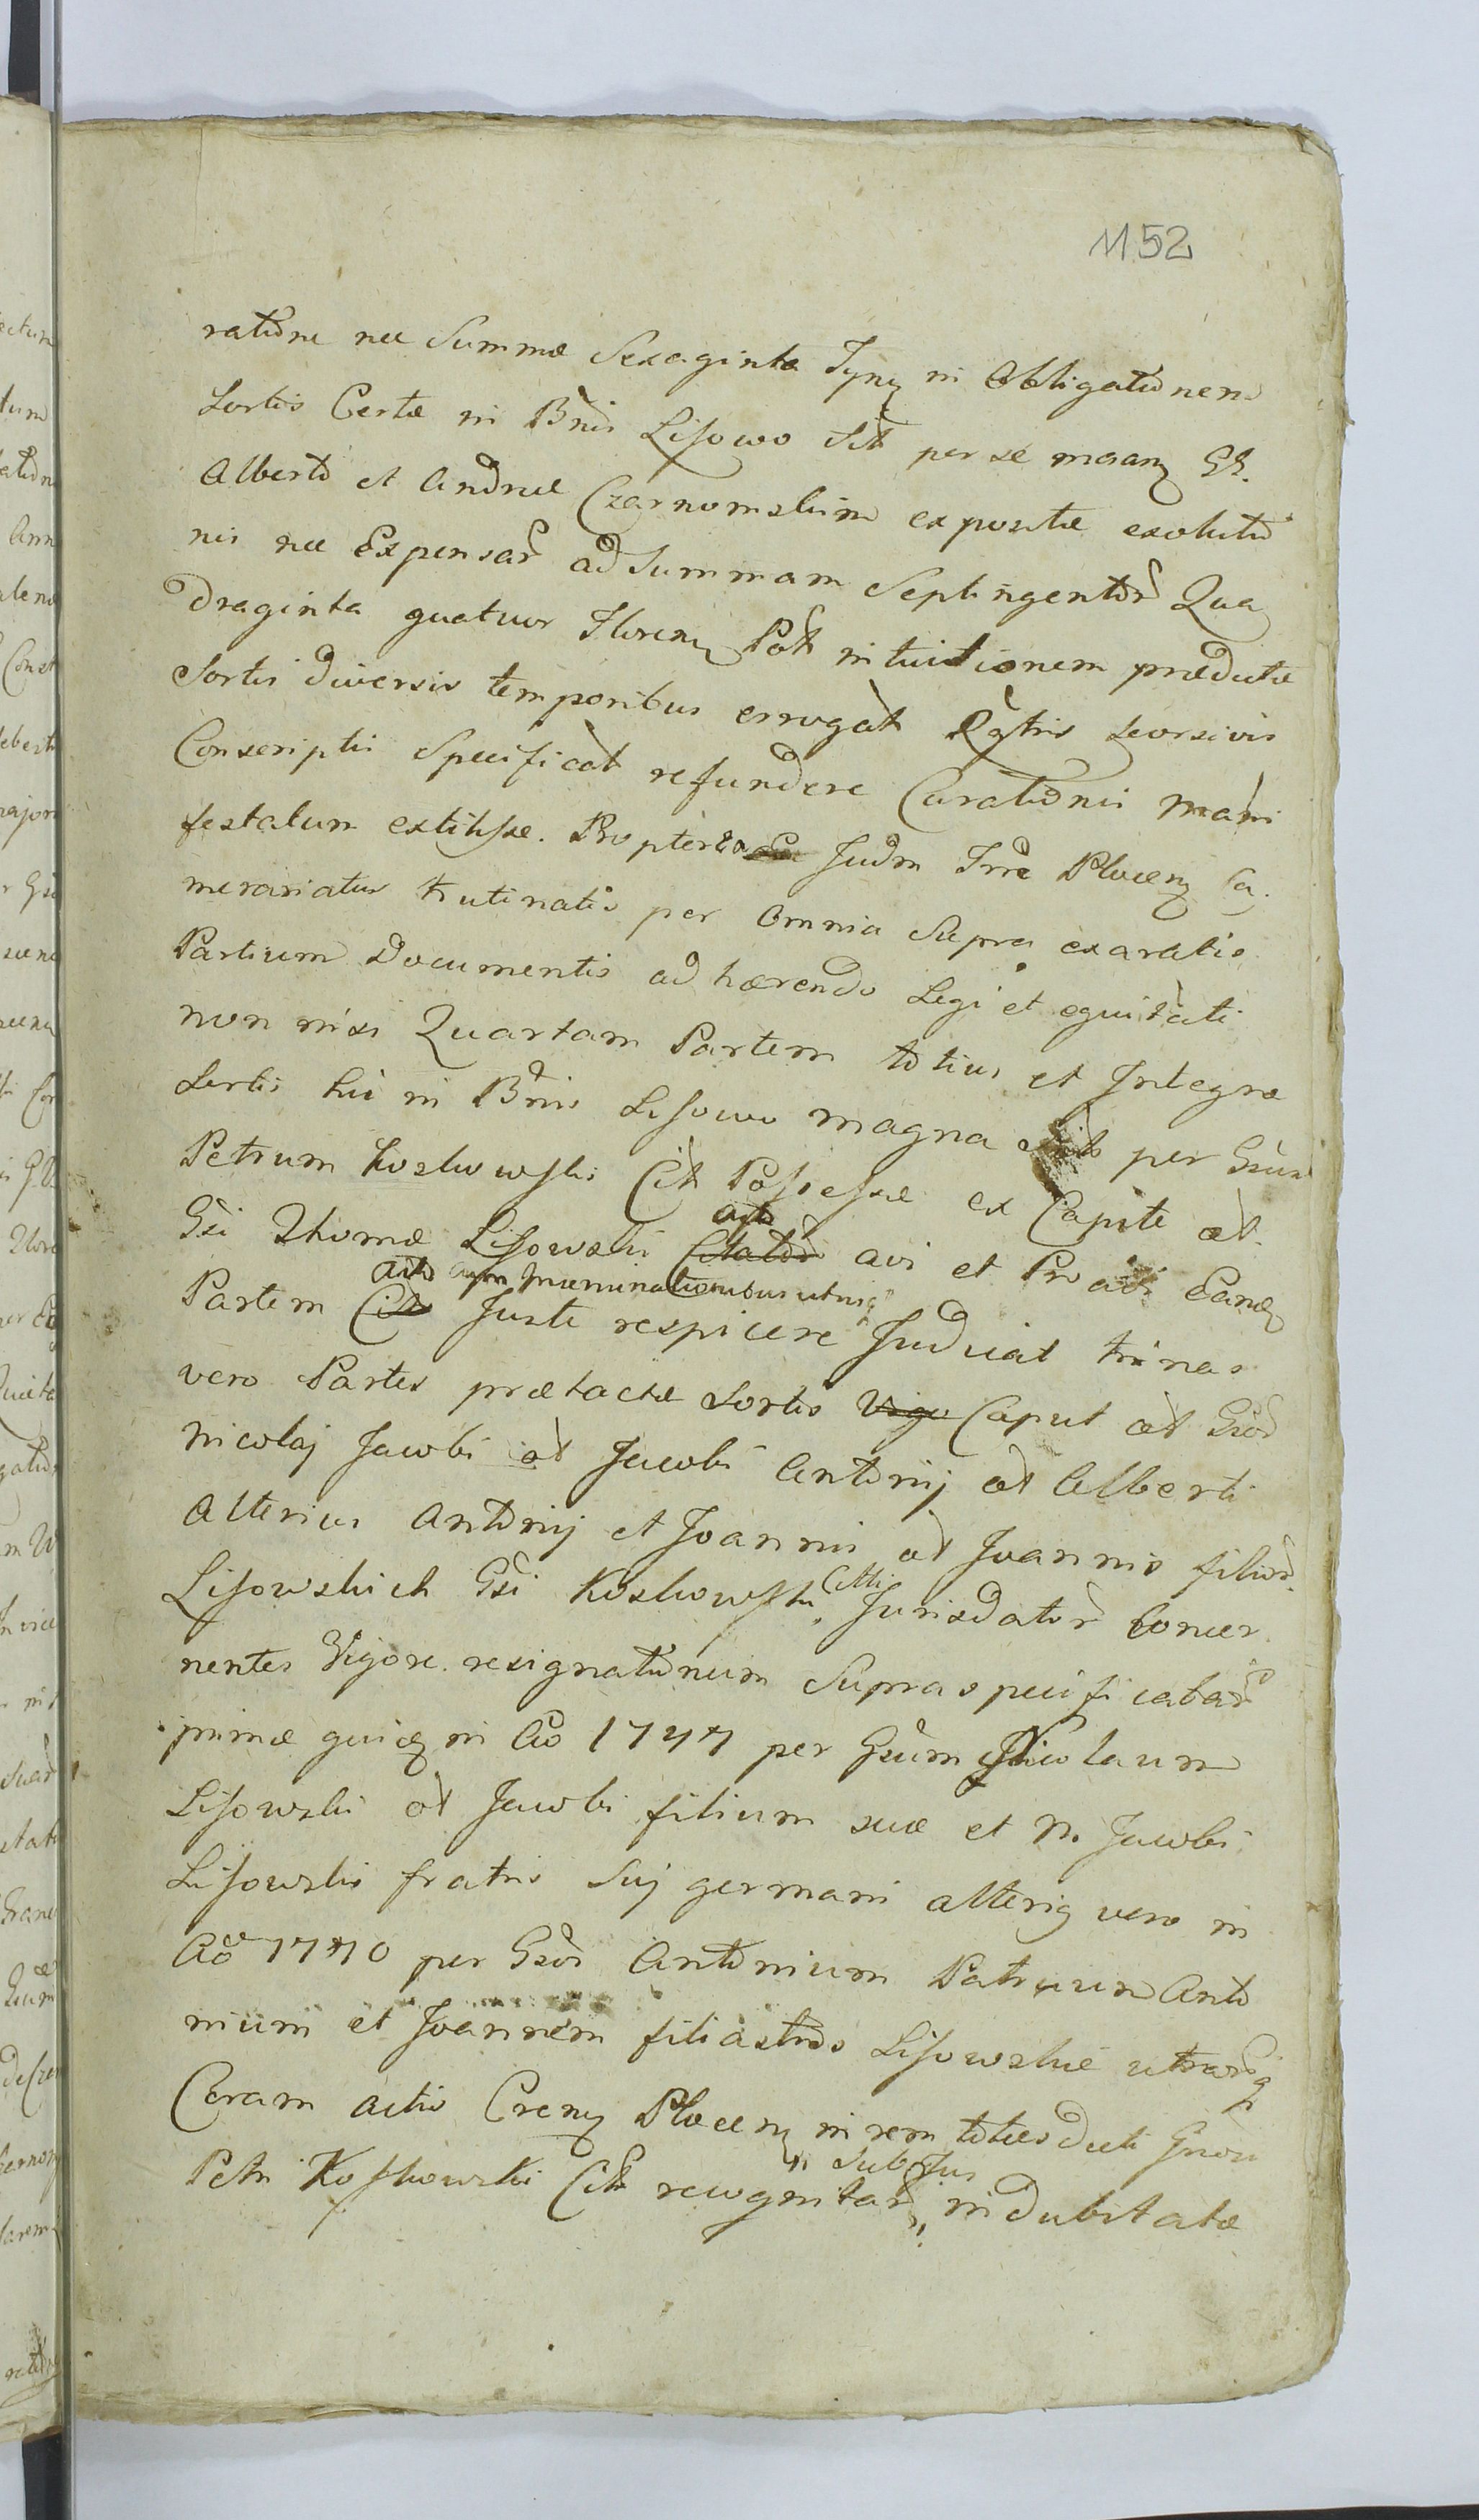 1152
ratione nec Summæ Sexaginta Tynf in Obligationem
Sortis Certæ in Bnis Lisowo Sit per se
Alberto et Andreæ Czarnomskim expositæ exolutio
nis nec Expensar ad Summam Septingentor Qua
draginta quatuor Floren Pol intuitionem prædictæ
Sortis diversis temporibus errogat Rgtris seorsivis
Conscriptis Specificat refundere Curationis mani
festatum extitisse. Propterea Judm Trre Plocen Ca
merariatus trutinatis per omnia Supra exaratis
Partium Documentis adhærendo Legi et equitati
non nisi Quartam Partem totius et Integræ
Sortis hic in Bnis Lisowo magna per Gsum
Petrum Koskowski Cit Possessæ ex Capite ot
Gsi Thomæ Lisowski Citator avi et Proavi Eand
acto
Partem Cit Juste respicere Judicat trinas
acto cum utriq
vero Partes prætactæ Sortis Vigo Caput ot Gsor
Nicolaj Jacobi ot Jacobi Antonij ot Alberti
Alterius Antonij et Joannis ot Joannis filior
Lisowskich Gsi Koskowski Citti Jurisdator Concer
nentes Vigore resignationum Supraspecificatar
primæ quid in Ao 1747 per Gsum Nicolaum
Lisowski ot Jacobi filium suæ et N. Jacobi
Lisowski fratris Sui germani alteriq vero in
Ao 1770 per Gsos Antonium Patruum Anto
nium et Joannem filiastros Lisowskie utrarq
Coram actis Cren Plocen in rem toties dicti Gnosi
Petri Koskowski Cit recognitar, Sub Jus indubitatæ